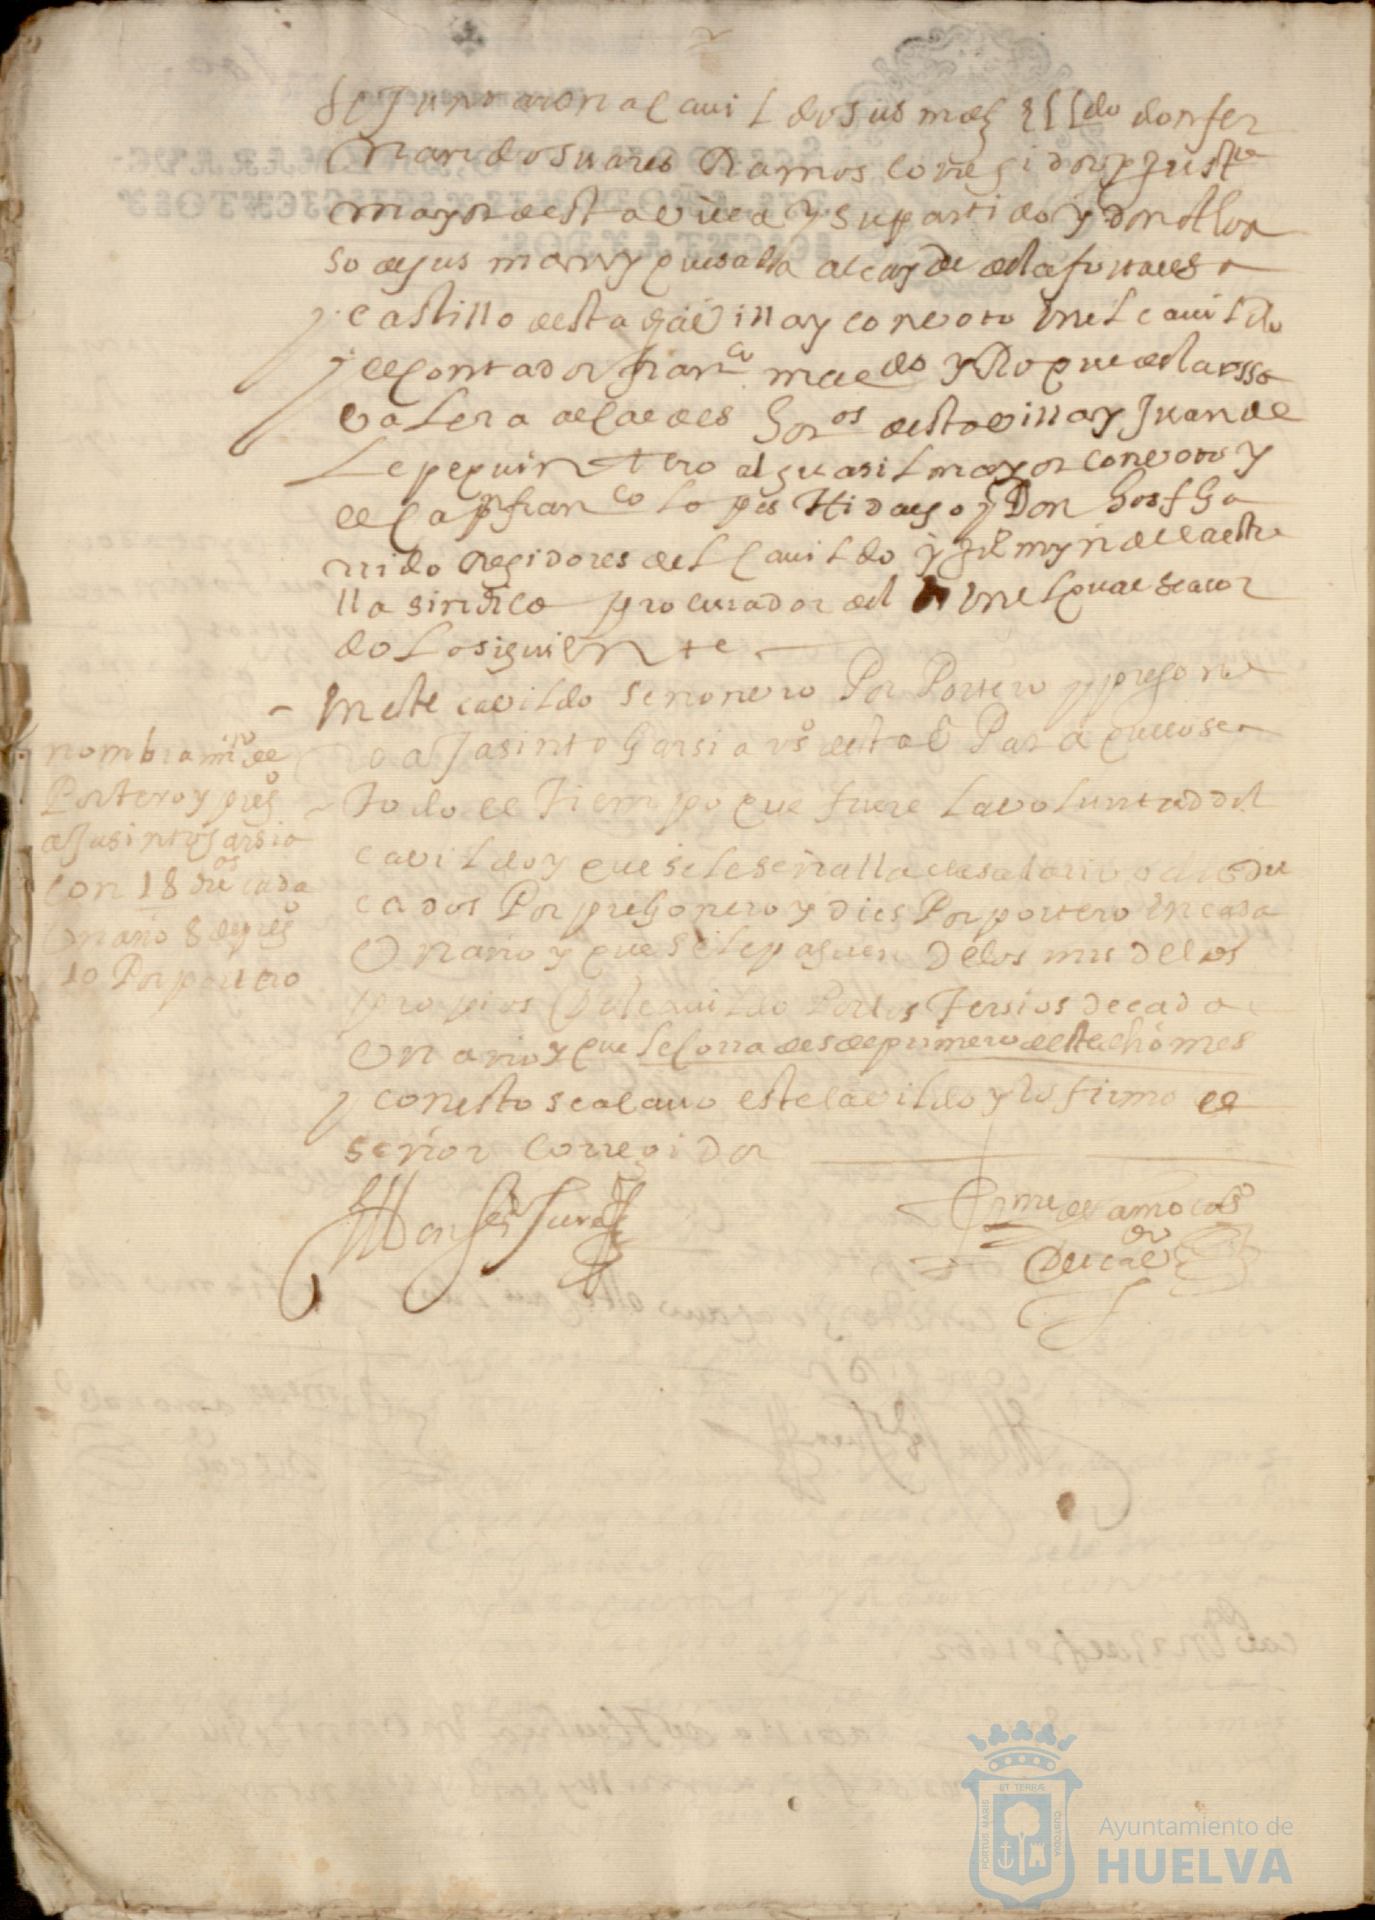 se Juntaron al cavildo sus mds ell ldo don fer
nando suares Ramos Corregidor y Justa
mayor desta villa y su partido y don Alon
so de jus alcayde dela fortalesa
y castillo desta dha villa y con voto en el cavildo
y el contador franco y Roque dela ossa
valera alcaldes hordos desta villa y Juan de
Le pequintero alguasil mayor con voto y
el capn franco Lopes Hidalgo y Don
rrido Regidores del Cavildo y
lla sindico procurador del en el qual se acor
do Lo siguiente
nombramto de
Portero y prego
a Jasinto garsia
con 18 ducos cada
Un año 8 de prego
10 Por portero
En este cavildo se nonvro Por Portero y pregone
ro a Jasinto Garsia vo desta va Para que lo sea
todo el Tiempo que fuere La voluntad del
cavildo y que se le señalla de salario ocho du
cados Por pregonero y dies Por portero En cada
Un año y que se le paguen De los mrs de los
propios Deste cavildo Por los Tersios de cada
Un año y que le Corra desde primero deste dho mes
y con esto se acavo este cavildo y lo firmo el
señor Corregidor
AYUNTAMIENTO DE
HUELVA
PORTUS MARIS
ET TERRÆ
CUSTODIA